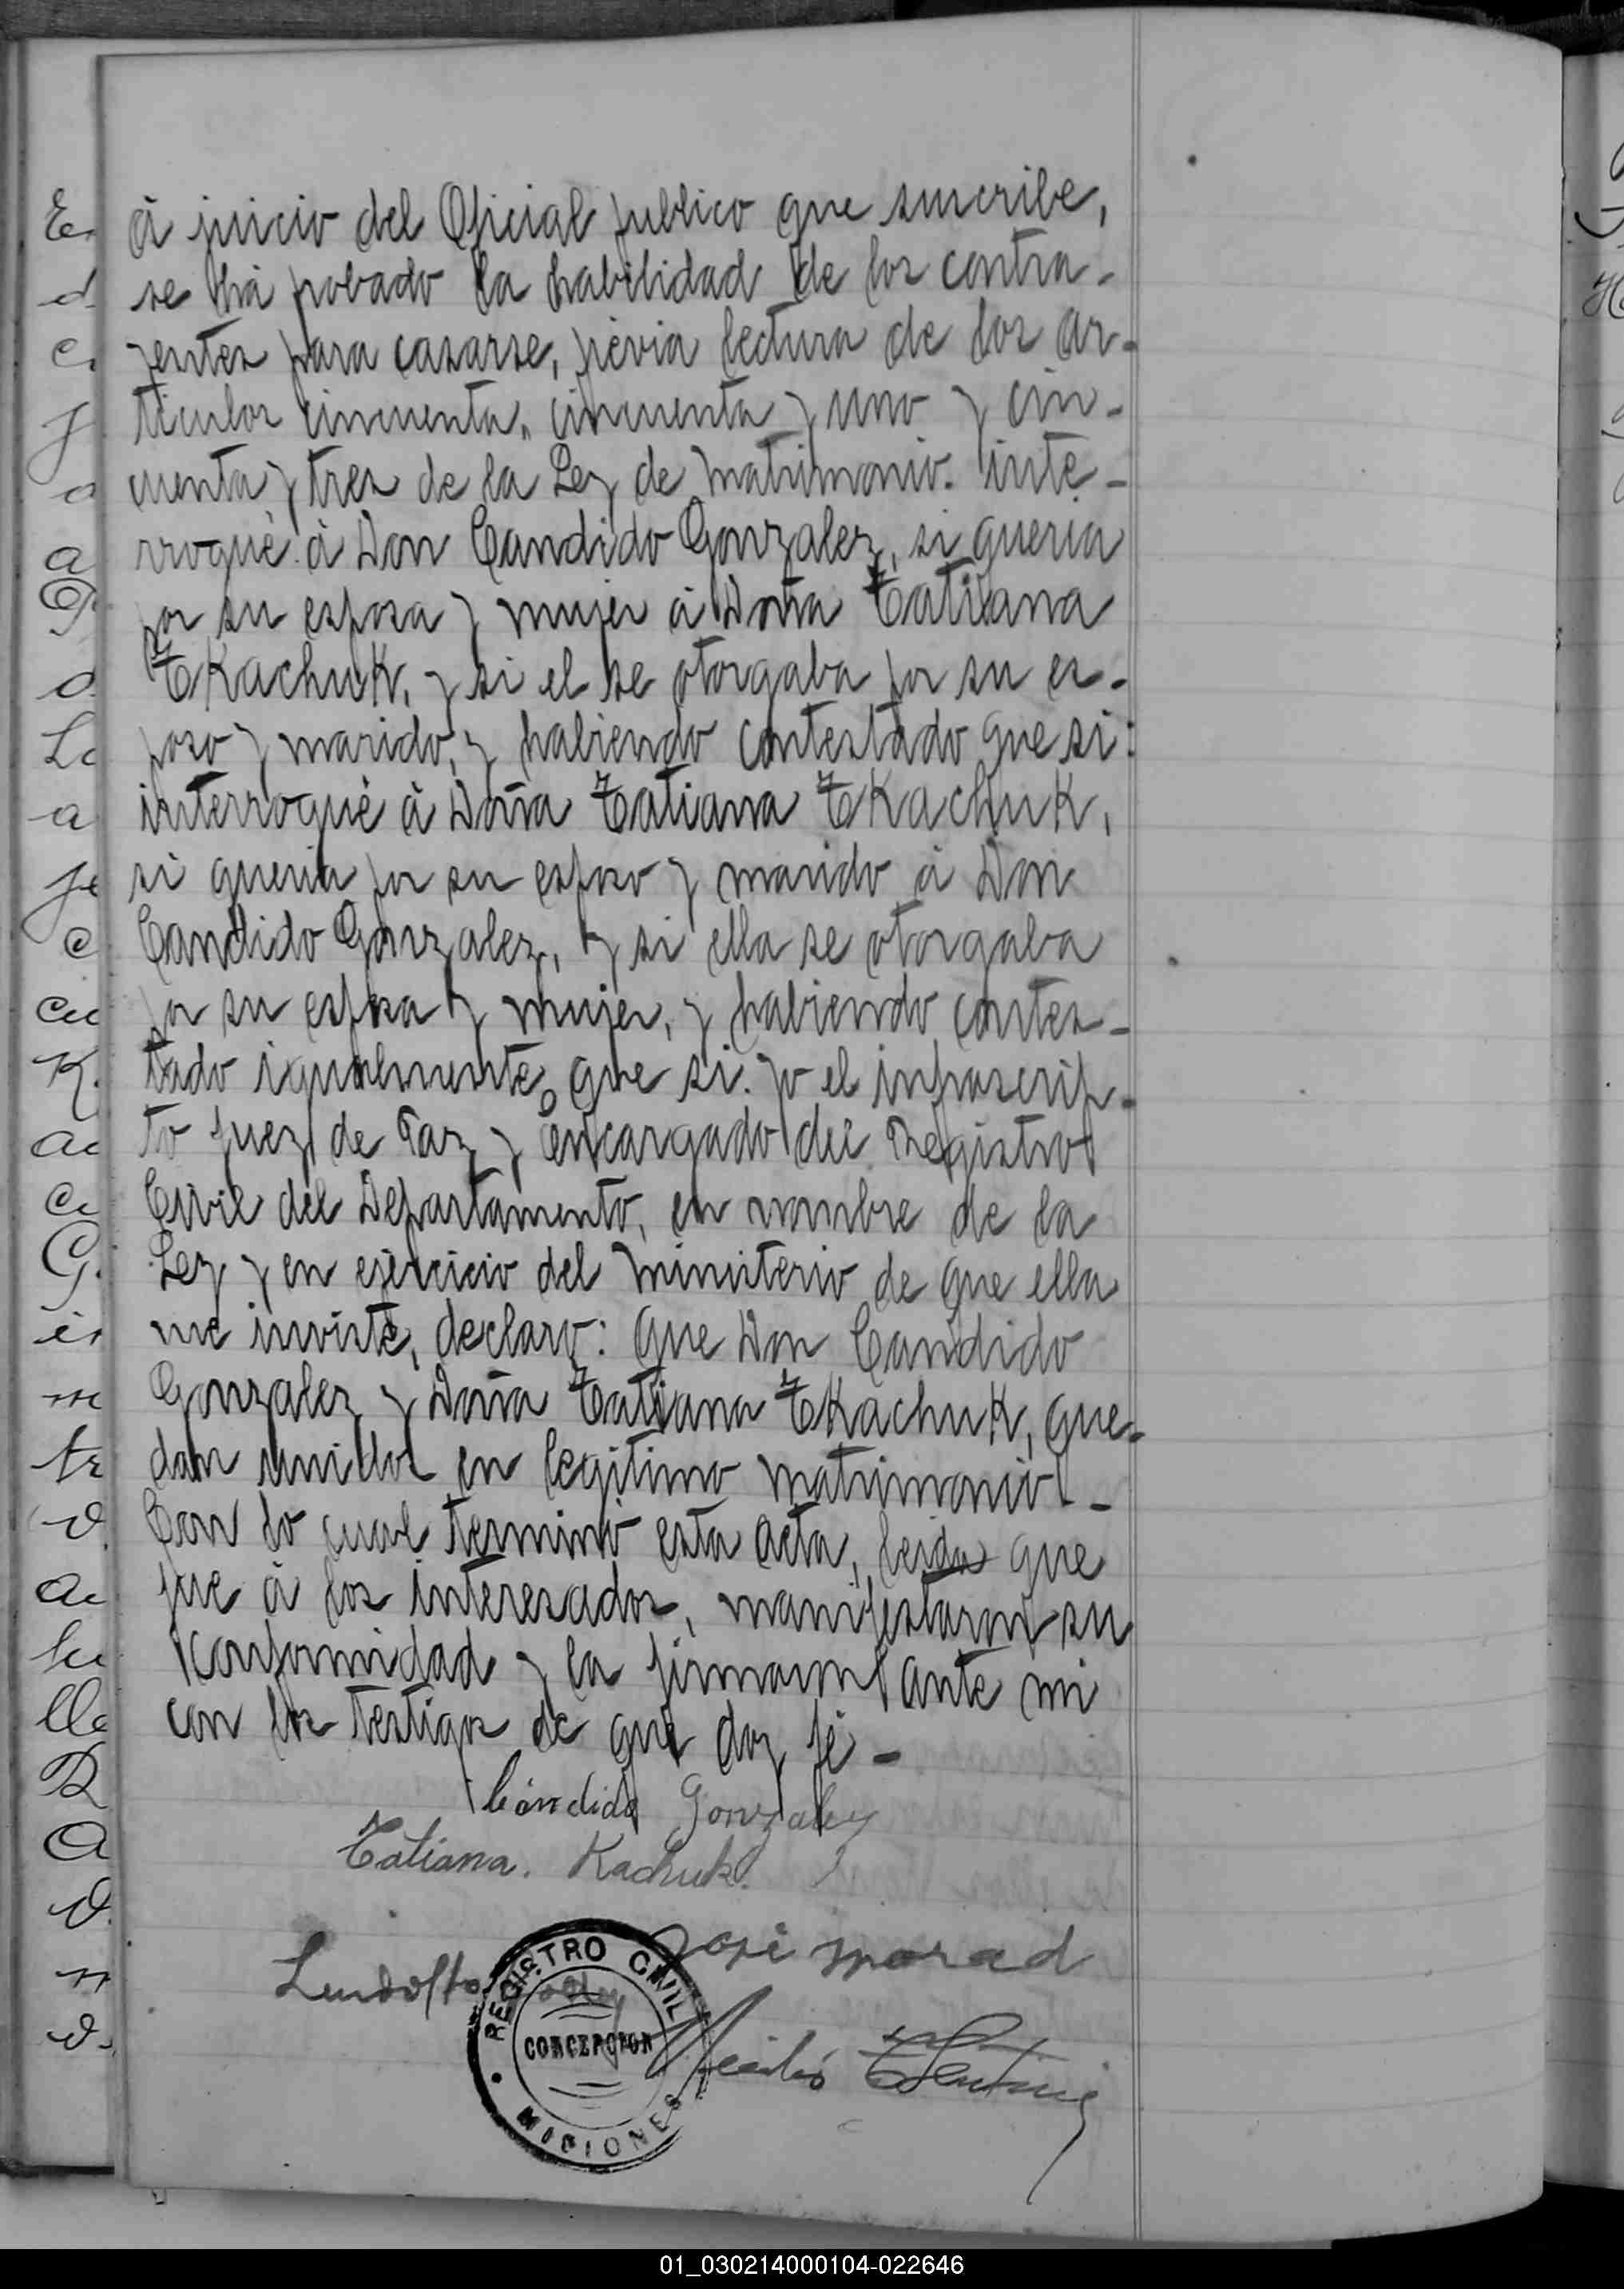 à juicio del Oficial publico que suscribe,
se há probado la habilidad de los contra-
yentes para casarse, prévia lectura de los ar-
ticulos cincuenta, cincuenta y uno y cin-
cuenta y tres de la Ley de Matrimonio. inte-
rrogué à Don Candido Gonzalez, si queria
por su esposa y mujer à Doña Tatiana
Tkachuk, y si el se otorgaba por su es-
poso y marido, y habiendo contestado que si:
interrogué à Doña Tatiana Tkachuk,
si queria por su esposo y marido à Don
Candido Gonzalez, y si ella se otorgaba
por su esposa y mujer, y habiendo contes-
tado igualmente que si. yo el infrascrip-
to Juez de Paz y encargado del Registro
Civil del Departamento, en nombre de la
Ley y en ejercicio del ministerio de que ella
me inviste, declaro: que Don Candido
Gonzalez y Doña Tatiana Tkachuk, que-
dan unidos en legitimo matrimonio.-
Con lo cual terminó esta acta, leida que
fue à los interesados, manifestaron su
conformidad y la firmaron ante mi
con los testigos de que doy fé-
Cándido Gonzalez
Tatiana. Kachuk.
José Morad
Lindolfo
REGISTRO CIVIL
CONCEPCION
MISIONES
01_030214000104-022646